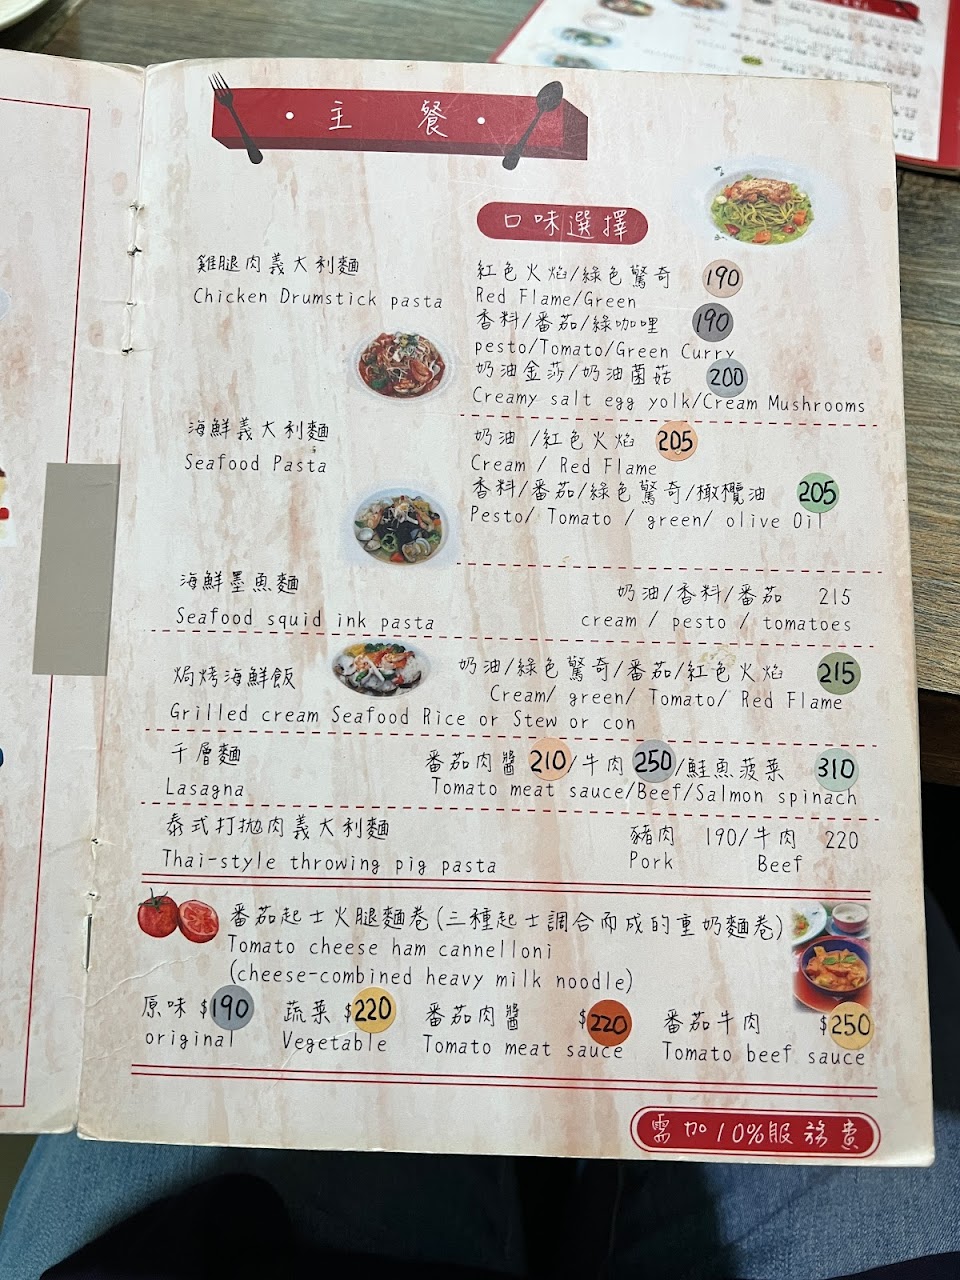 · 主 餐 ·
口味選擇
雞腿肉義大利麵
Chicken Drumstick pasta
紅色火焰/綠色驚奇 190
Red Flame/Green
香料/番茄/綠咖哩 190
pesto/Tomato/Green Curry
奶油金莎/奶油菌菇 200
Creamy salt egg yolk/Cream Mushrooms
海鮮義大利麵
Seafood Pasta
奶油 /紅色火焰 205
Cream / Red Flame
香料/番茄/綠色驚奇/橄欖油 205
Pesto/ Tomato / green/ olive Oil
海鮮墨魚麵
Seafood squid ink pasta
奶油/香料/番茄 215
cream / pesto / tomatoes
焗烤海鮮飯
奶油/綠色驚奇/番茄/紅色火焰 215
Cream/ green/ Tomato/ Red Flame
Grilled cream Seafood Rice or Stew or con
千層麵
Lasagna
番茄肉醬 210/牛肉 250/鮭魚菠菜 310
Tomato meat sauce/Beef/Salmon spinach
泰式打拋肉義大利麵
Thai-style throwing pig pasta
豬肉 190/牛肉 220
Pork Beef
番茄起士火腿麵卷(三種起士調合而成的重奶麵卷)
Tomato cheese ham cannelloni
(cheese-combined heavy milk noodle)
原味 $190 蔬菜 $220 番茄肉醬 $220 番茄牛肉 $250
original Vegetable Tomato meat sauce Tomato beef sauce
需加10%服務費